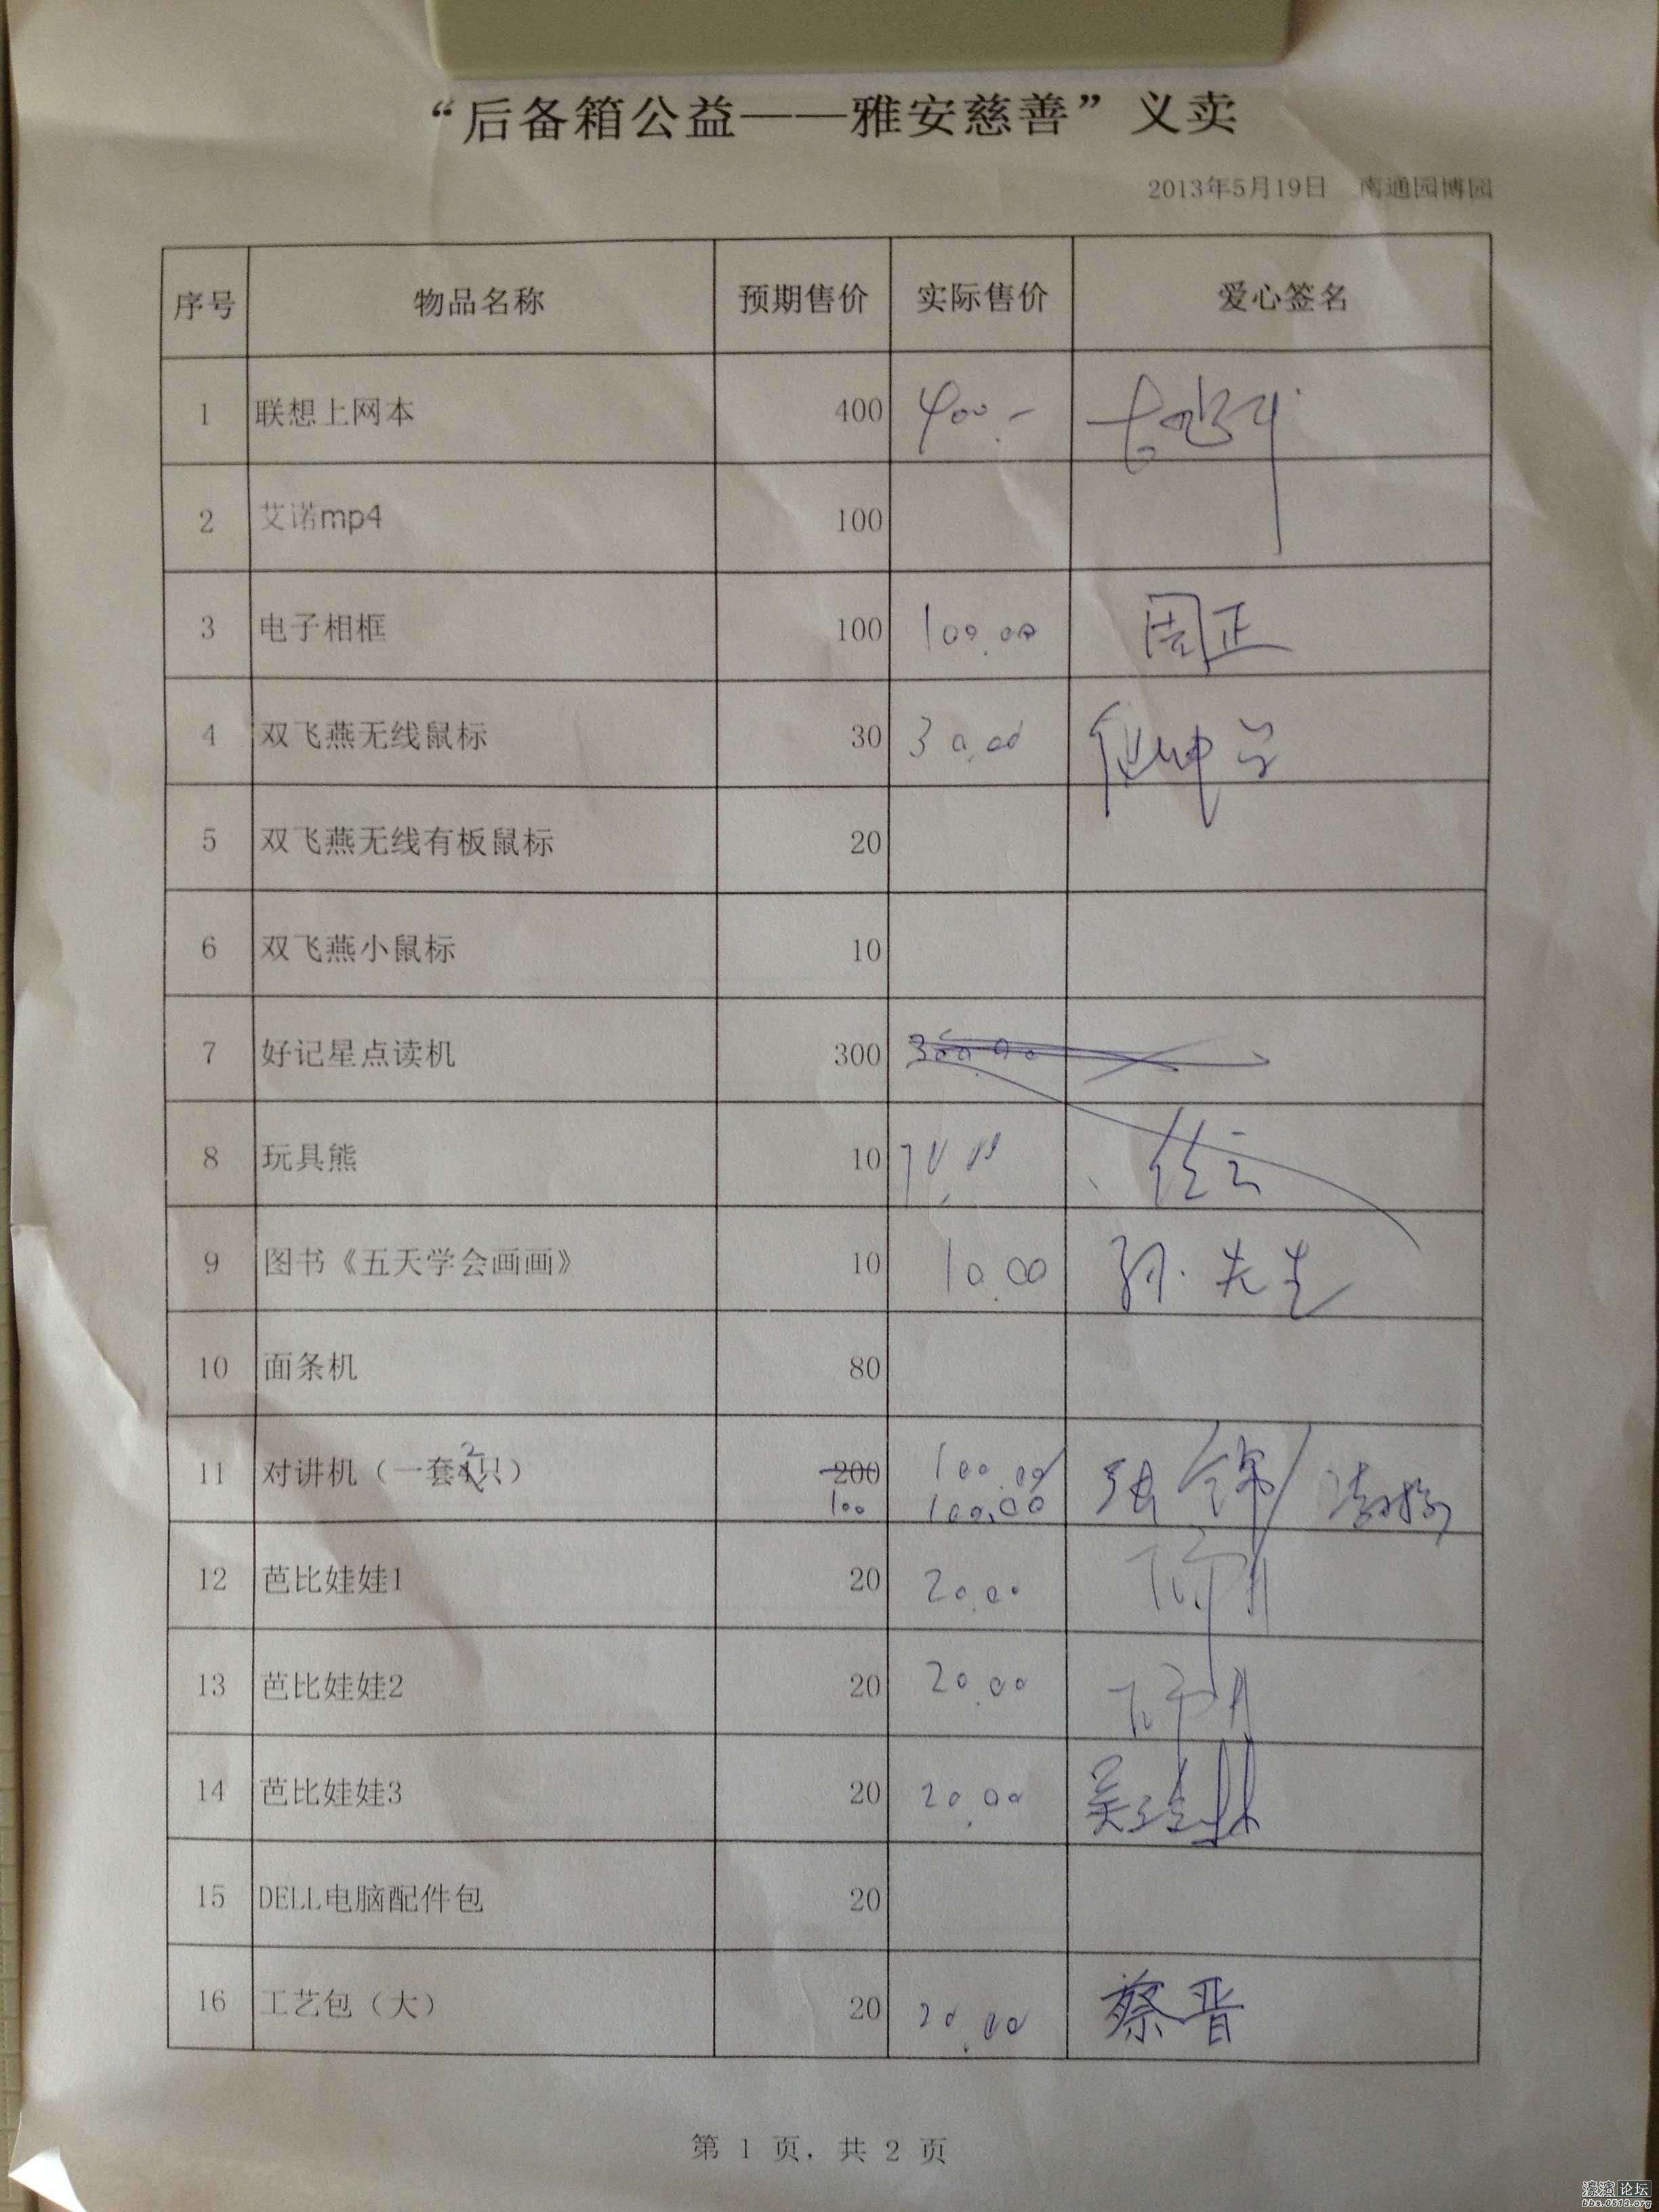 “后备箱公益——雅安慈善”义卖
2013年5月19日 南通园博园
序号 物品名称 预期售价 实际售价 爱心签名
1 联想上网本 400 400.-
2 艾诺mp4 100
3 电子相框 100 100.00 周正
4 双飞燕无线鼠标 30 30.00
5 双飞燕无线有板鼠标 20
6 双飞燕小鼠标 10
7 好记星点读机 300 300.00
8 玩具熊 10
9 图书《五天学会画画》 10 10.00 孙先生
10 面条机 80
11 对讲机（一套2只） 200 100.00 张锦/
100 100.00
12 芭比娃娃1 20 20.00
13 芭比娃娃2 20 20.00
14 芭比娃娃3 20 20.00
15 DELL电脑配件包 20
16 工艺包（大） 20 20.00 蔡晋
第 1 页，共 2 页
濠滨论坛
bbs.0513.org